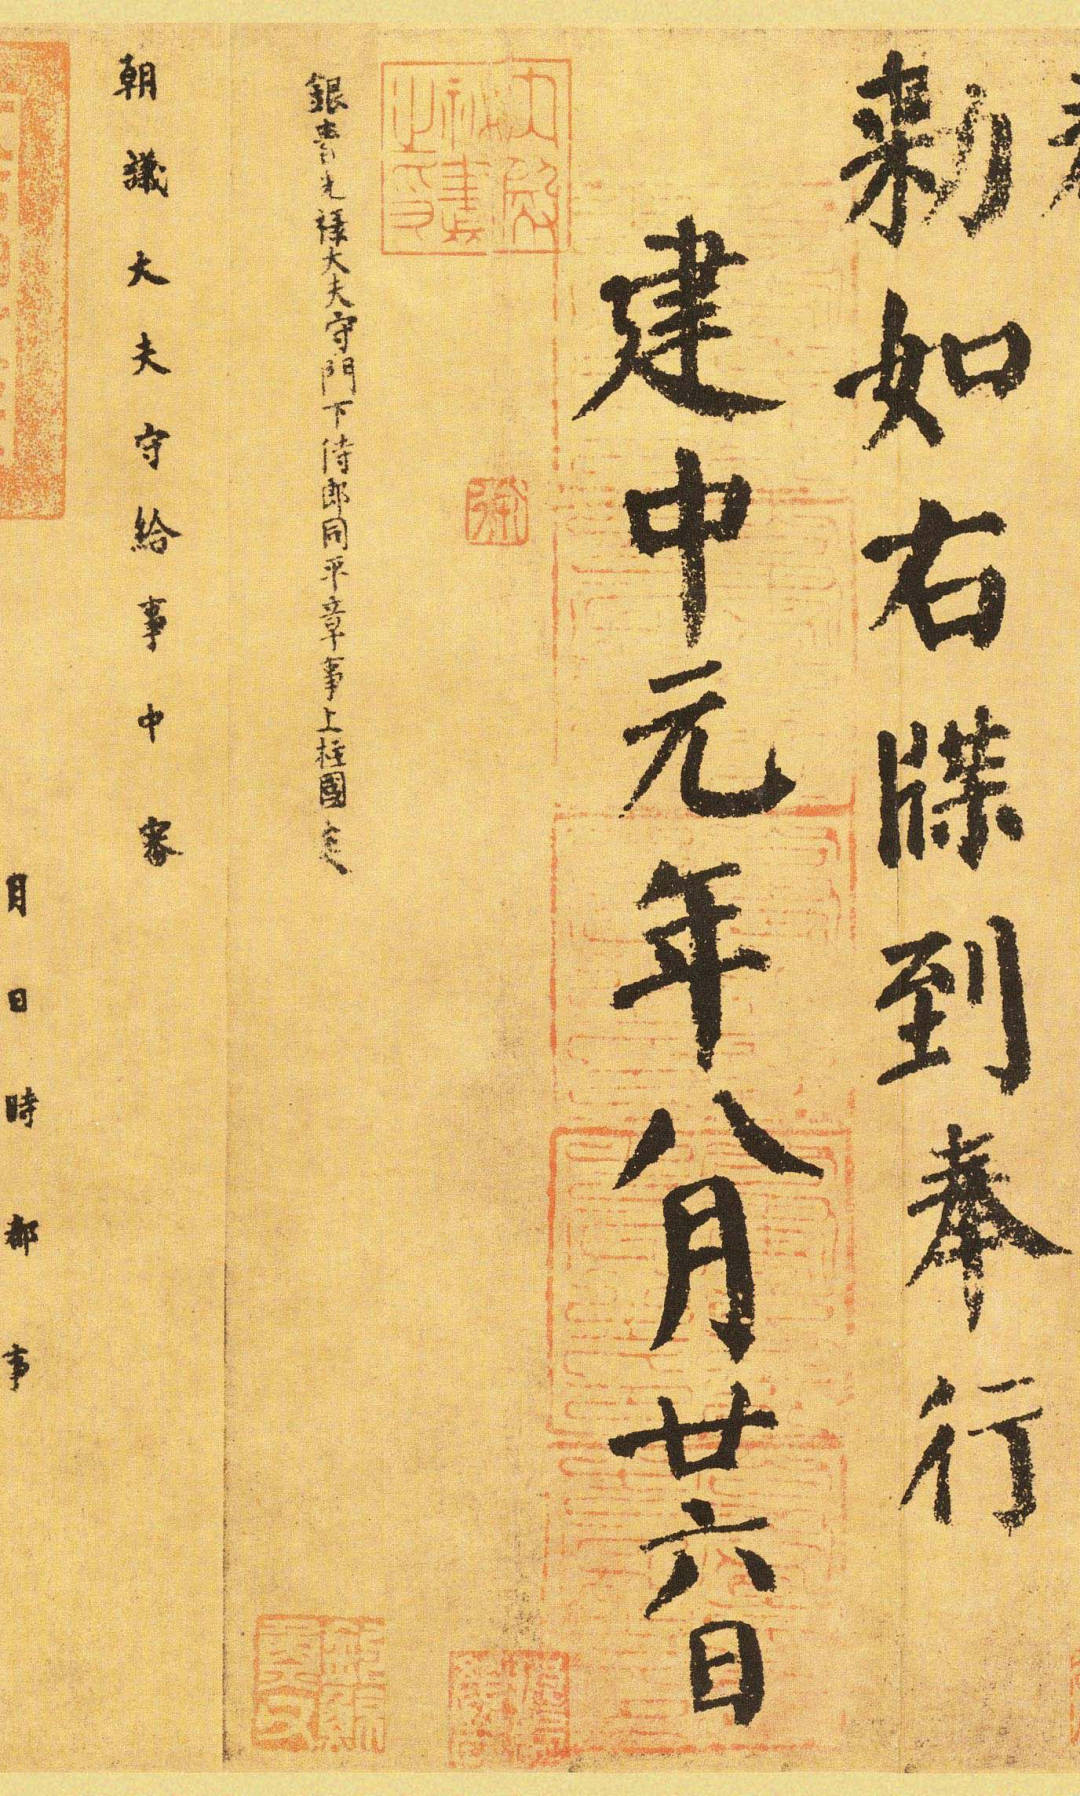 勅如右牒到奉行
建中元年八月廿六日
銀青光禄大夫守門下侍郎同平章事上柱國
朝議大夫守給事中審
月日時都事